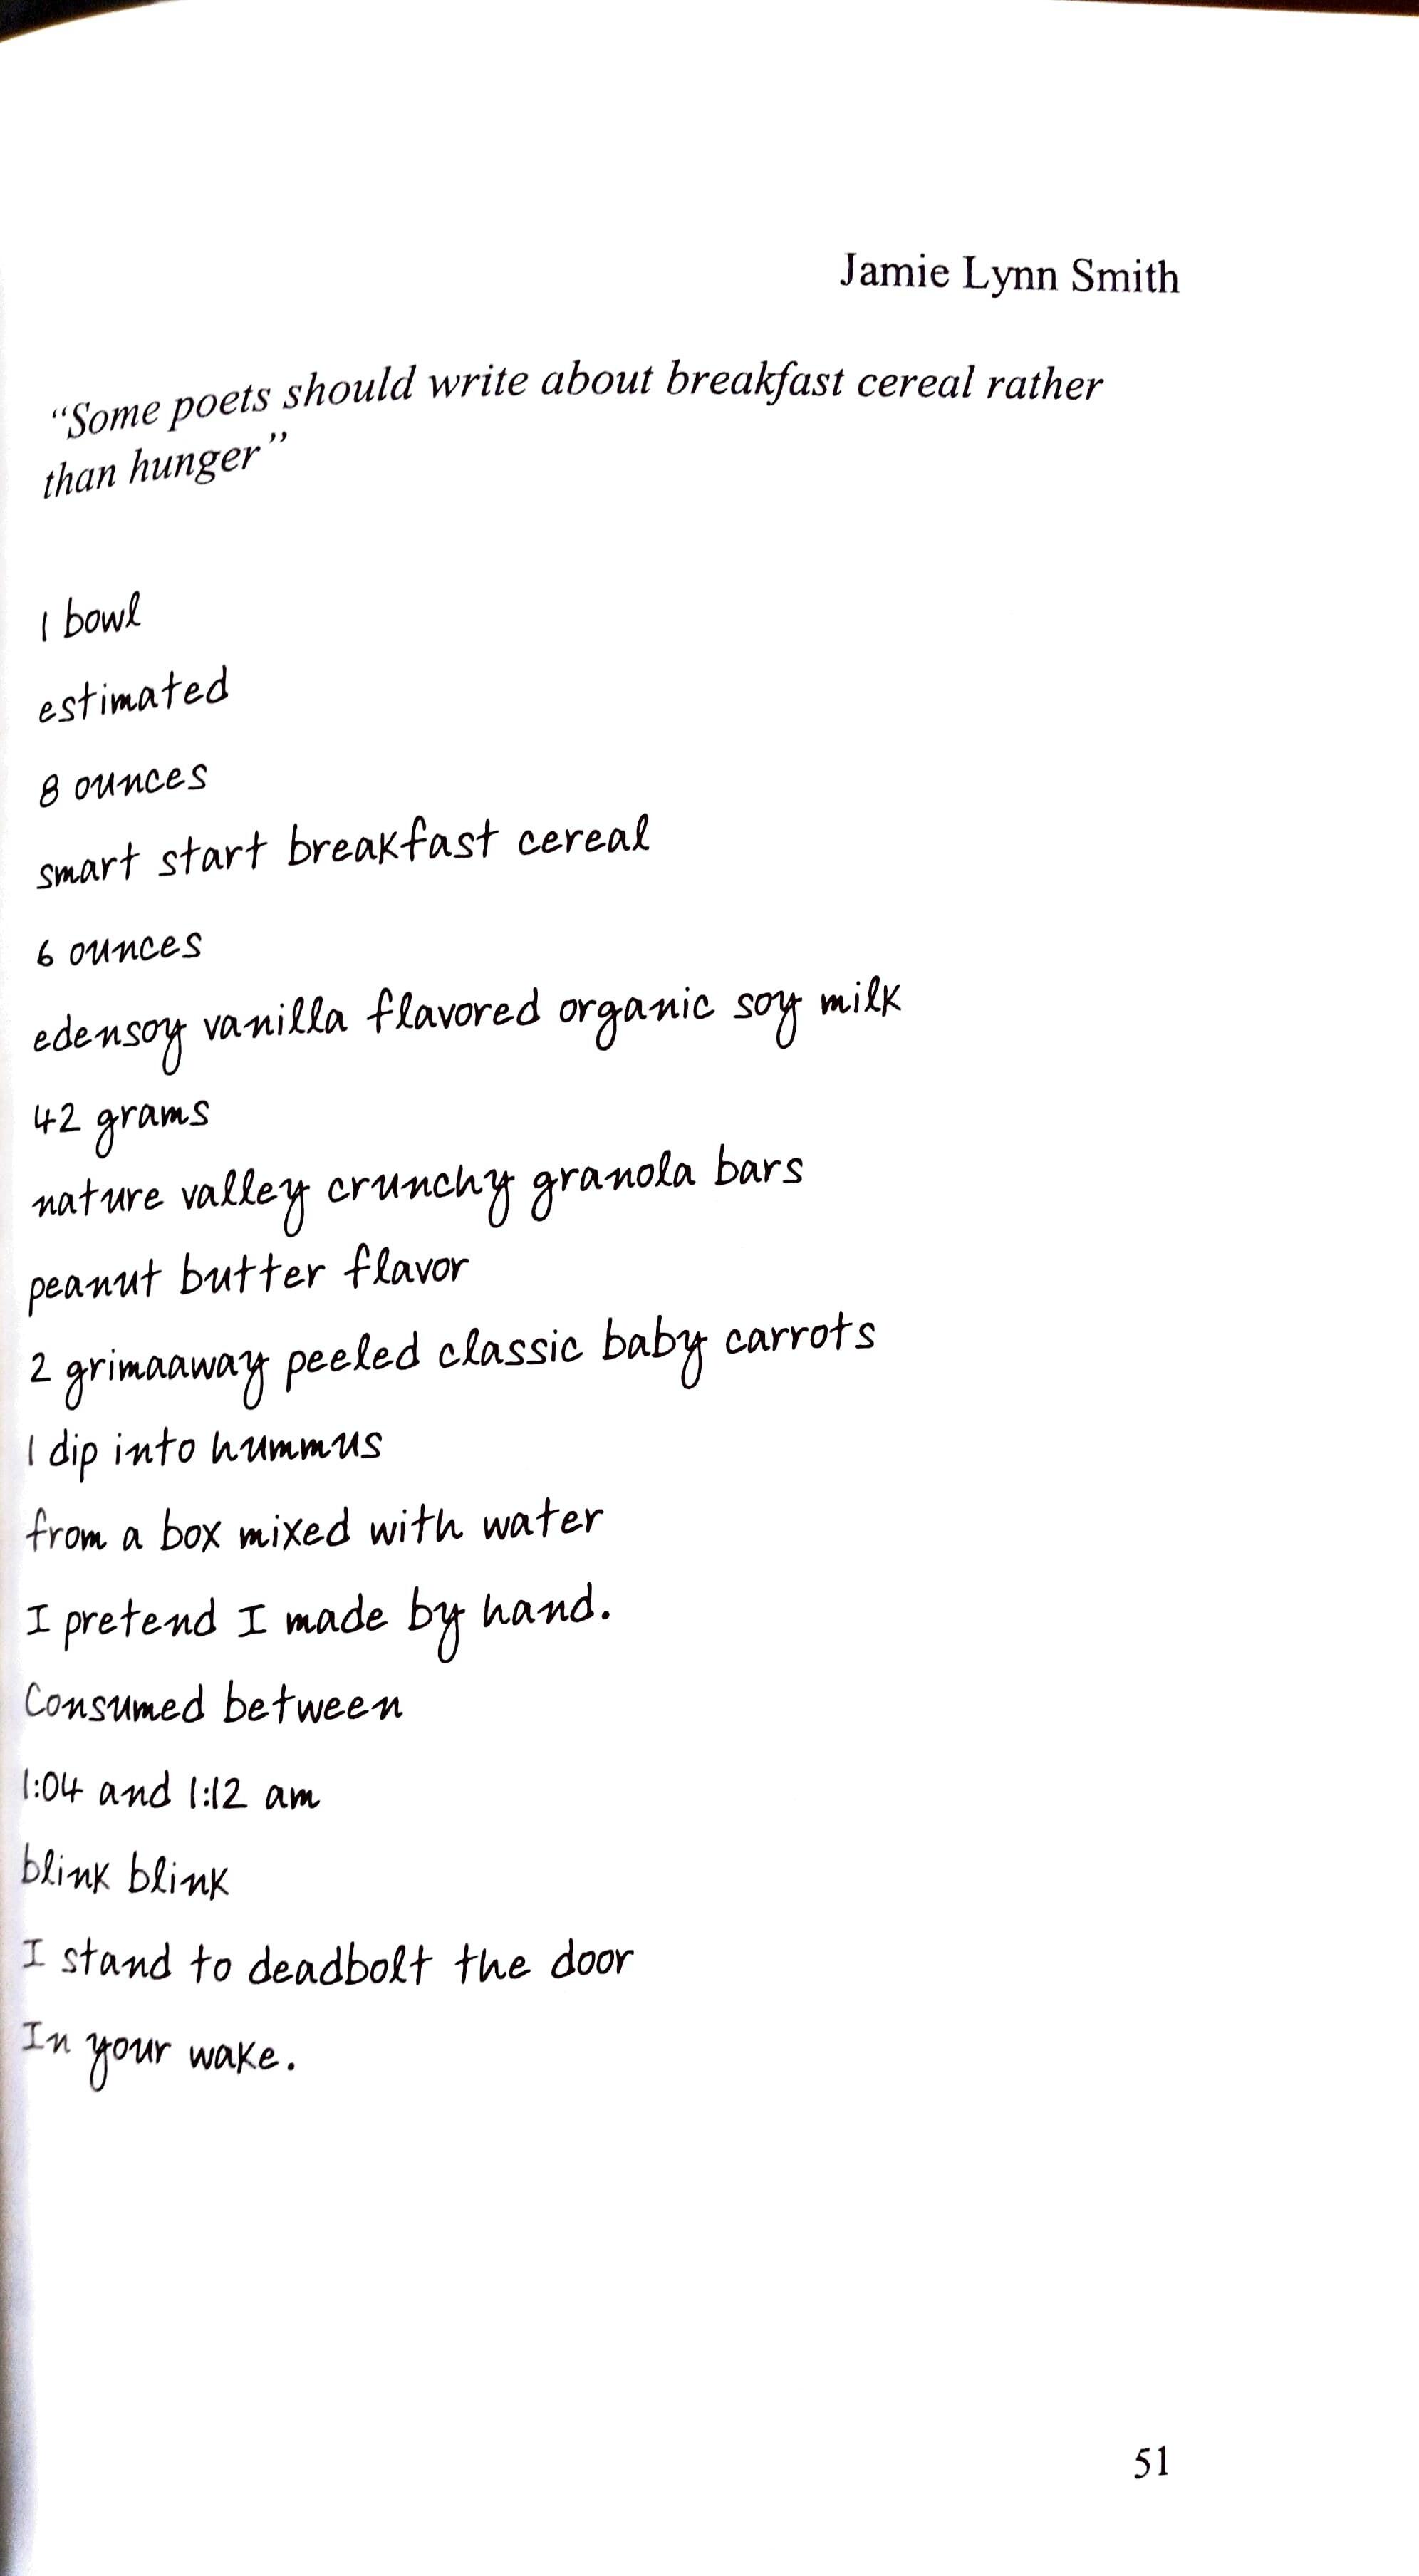 Jamie Lynn Smith
“Some poets should write about breakfast cereal rather
than hunger”
1 bowl
estimated
8 ounces
smart start breakfast cereal
6 ounces
edensoy vanilla flavored organic soy milk
42 grams
nature valley crunchy granola bars
peanut butter flavor
2 grimaaway peeled classic baby carrots
I dip into hummus
from a box mixed with water
I pretend I made by hand.
Consumed between
1:04 and 1:12 am
blink blink
I stand to deadbolt the door
In your wake.
51